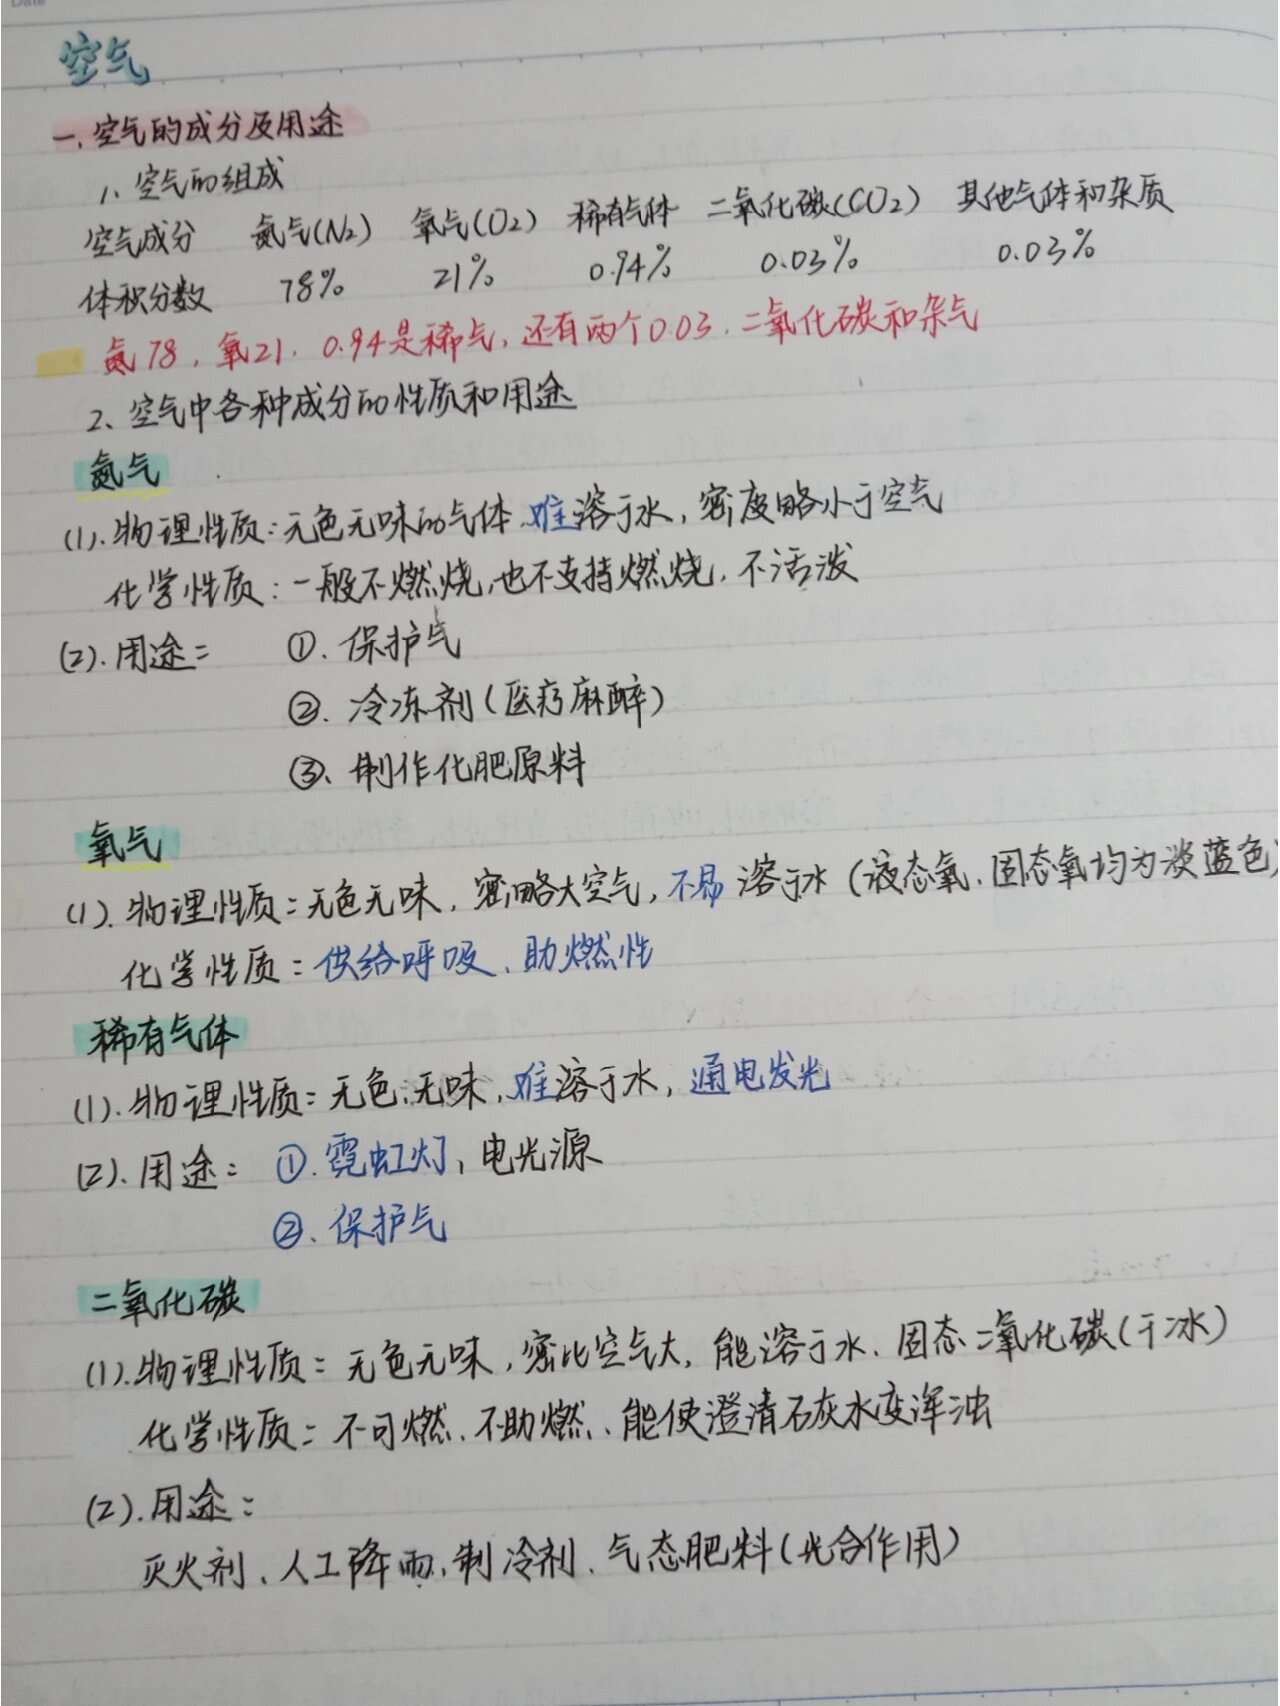 Date
空气
一、空气的成分及用途
1、空气的组成
空气成分 氮气(N₂) 氧气(O₂) 稀有气体 二氧化碳(CO₂) 其他气体和杂质
体积分数 78% 21% 0.94% 0.03% 0.03%
氮78，氧21，0.94是稀气，还有两个0.03，二氧化碳和杂气
2、空气中各种成分的性质和用途
氮气
(1).物理性质：无色无味的气体，难溶于水，密度略小于空气
化学性质：一般不燃烧，也不支持燃烧，不活泼
(2).用途： ①.保护气
②.冷冻剂(医疗麻醉)
③、制作化肥原料
氧气
(1).物理性质：无色无味，密略大空气，不易溶于水(液态氧、固态氧均为淡蓝色)
化学性质：供给呼吸、助燃性
稀有气体
(1).物理性质：无色、无味，难溶于水，通电发光
(2).用途： ①.霓虹灯，电光源
②.保护气
二氧化碳
(1).物理性质：无色无味，密比空气大，能溶于水、固态二氧化碳(干冰)
化学性质：不可燃、不助燃、能使澄清石灰水变浑浊
(2).用途：
灭火剂、人工降雨、制冷剂、气态肥料(光合作用)